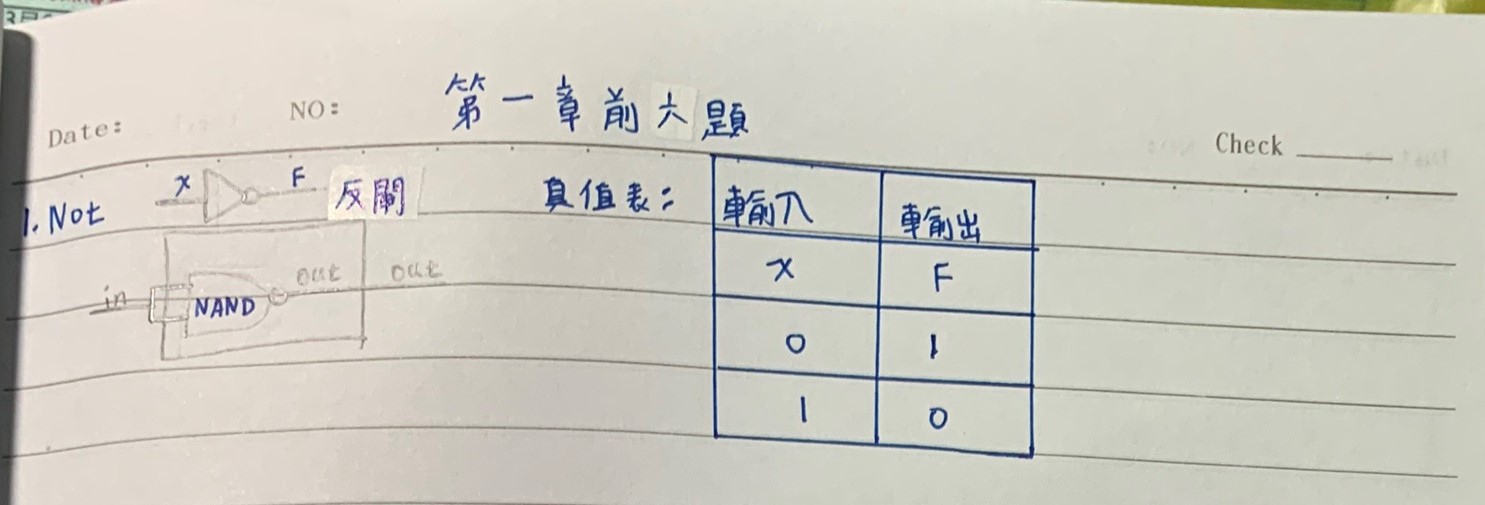 3月
Date:
NO:
第一章前六題
Check
1. Not
X
F
反閘
in
NAND
out
out
真值表:
輸入 輸出
X F
0 1
1 0